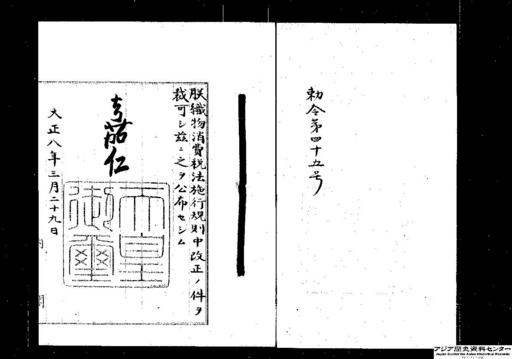 勅令第四十五号
朕織物消費税法施行規則中改正ノ件ヲ
裁可シ茲ニ之ヲ公布セシム
嘉仁
天皇
御璽
大正八年三月二十九日
内閣
アジア歴史資料センター
Japan Center for Asian Historical Records